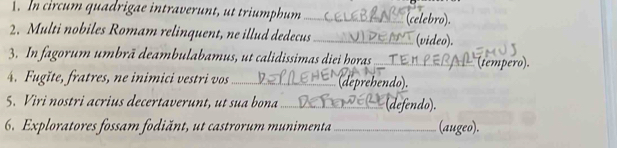 1. In circum quadrigae intraverunt, ut triumphum CELEBRARENT (celebro).
2. Multi nobiles Romam relinquent, ne illud dedecus VIDEANT (video).
3. In fagorum umbrā deambulabamus, ut calidissimas diei horas TEMPERAREMUS (tempero).
4. Fugĭte, fratres, ne inimici vestri vos DEPREHENDANT (deprehendo).
5. Viri nostri acrius decertaverunt, ut sua bona DEFENDERENT (defendo).
6. Exploratores fossam fodiănt, ut castrorum munimenta ____ (augeo).